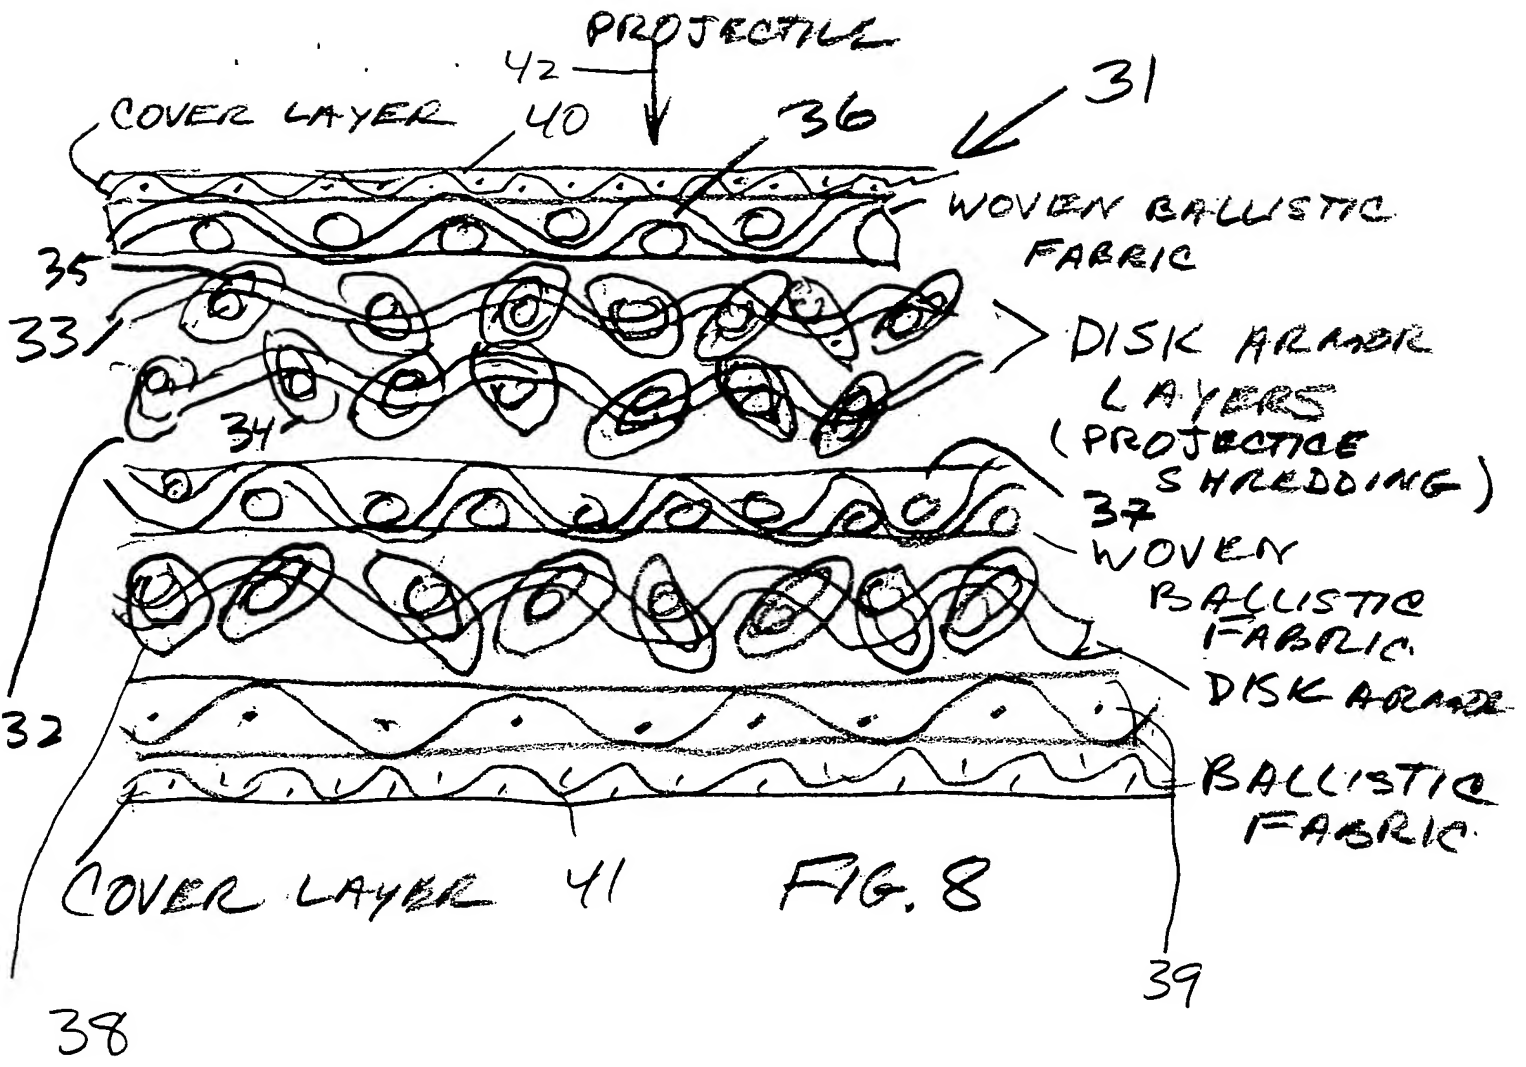 PROJECTILE
42
31
COVER LAYER
40
36
WOVEN BALLISTIC
FABRIC
35
33
DISK ARMOR
LAYERS
(PROJECTICE
SHREDDING)
34
37
WOVEN
BALLISTIC
FABRIC.
DISK ARMOR
32
BALLISTIC
FABRIC.
COVER LAYER
41
FIG. 8
39
38